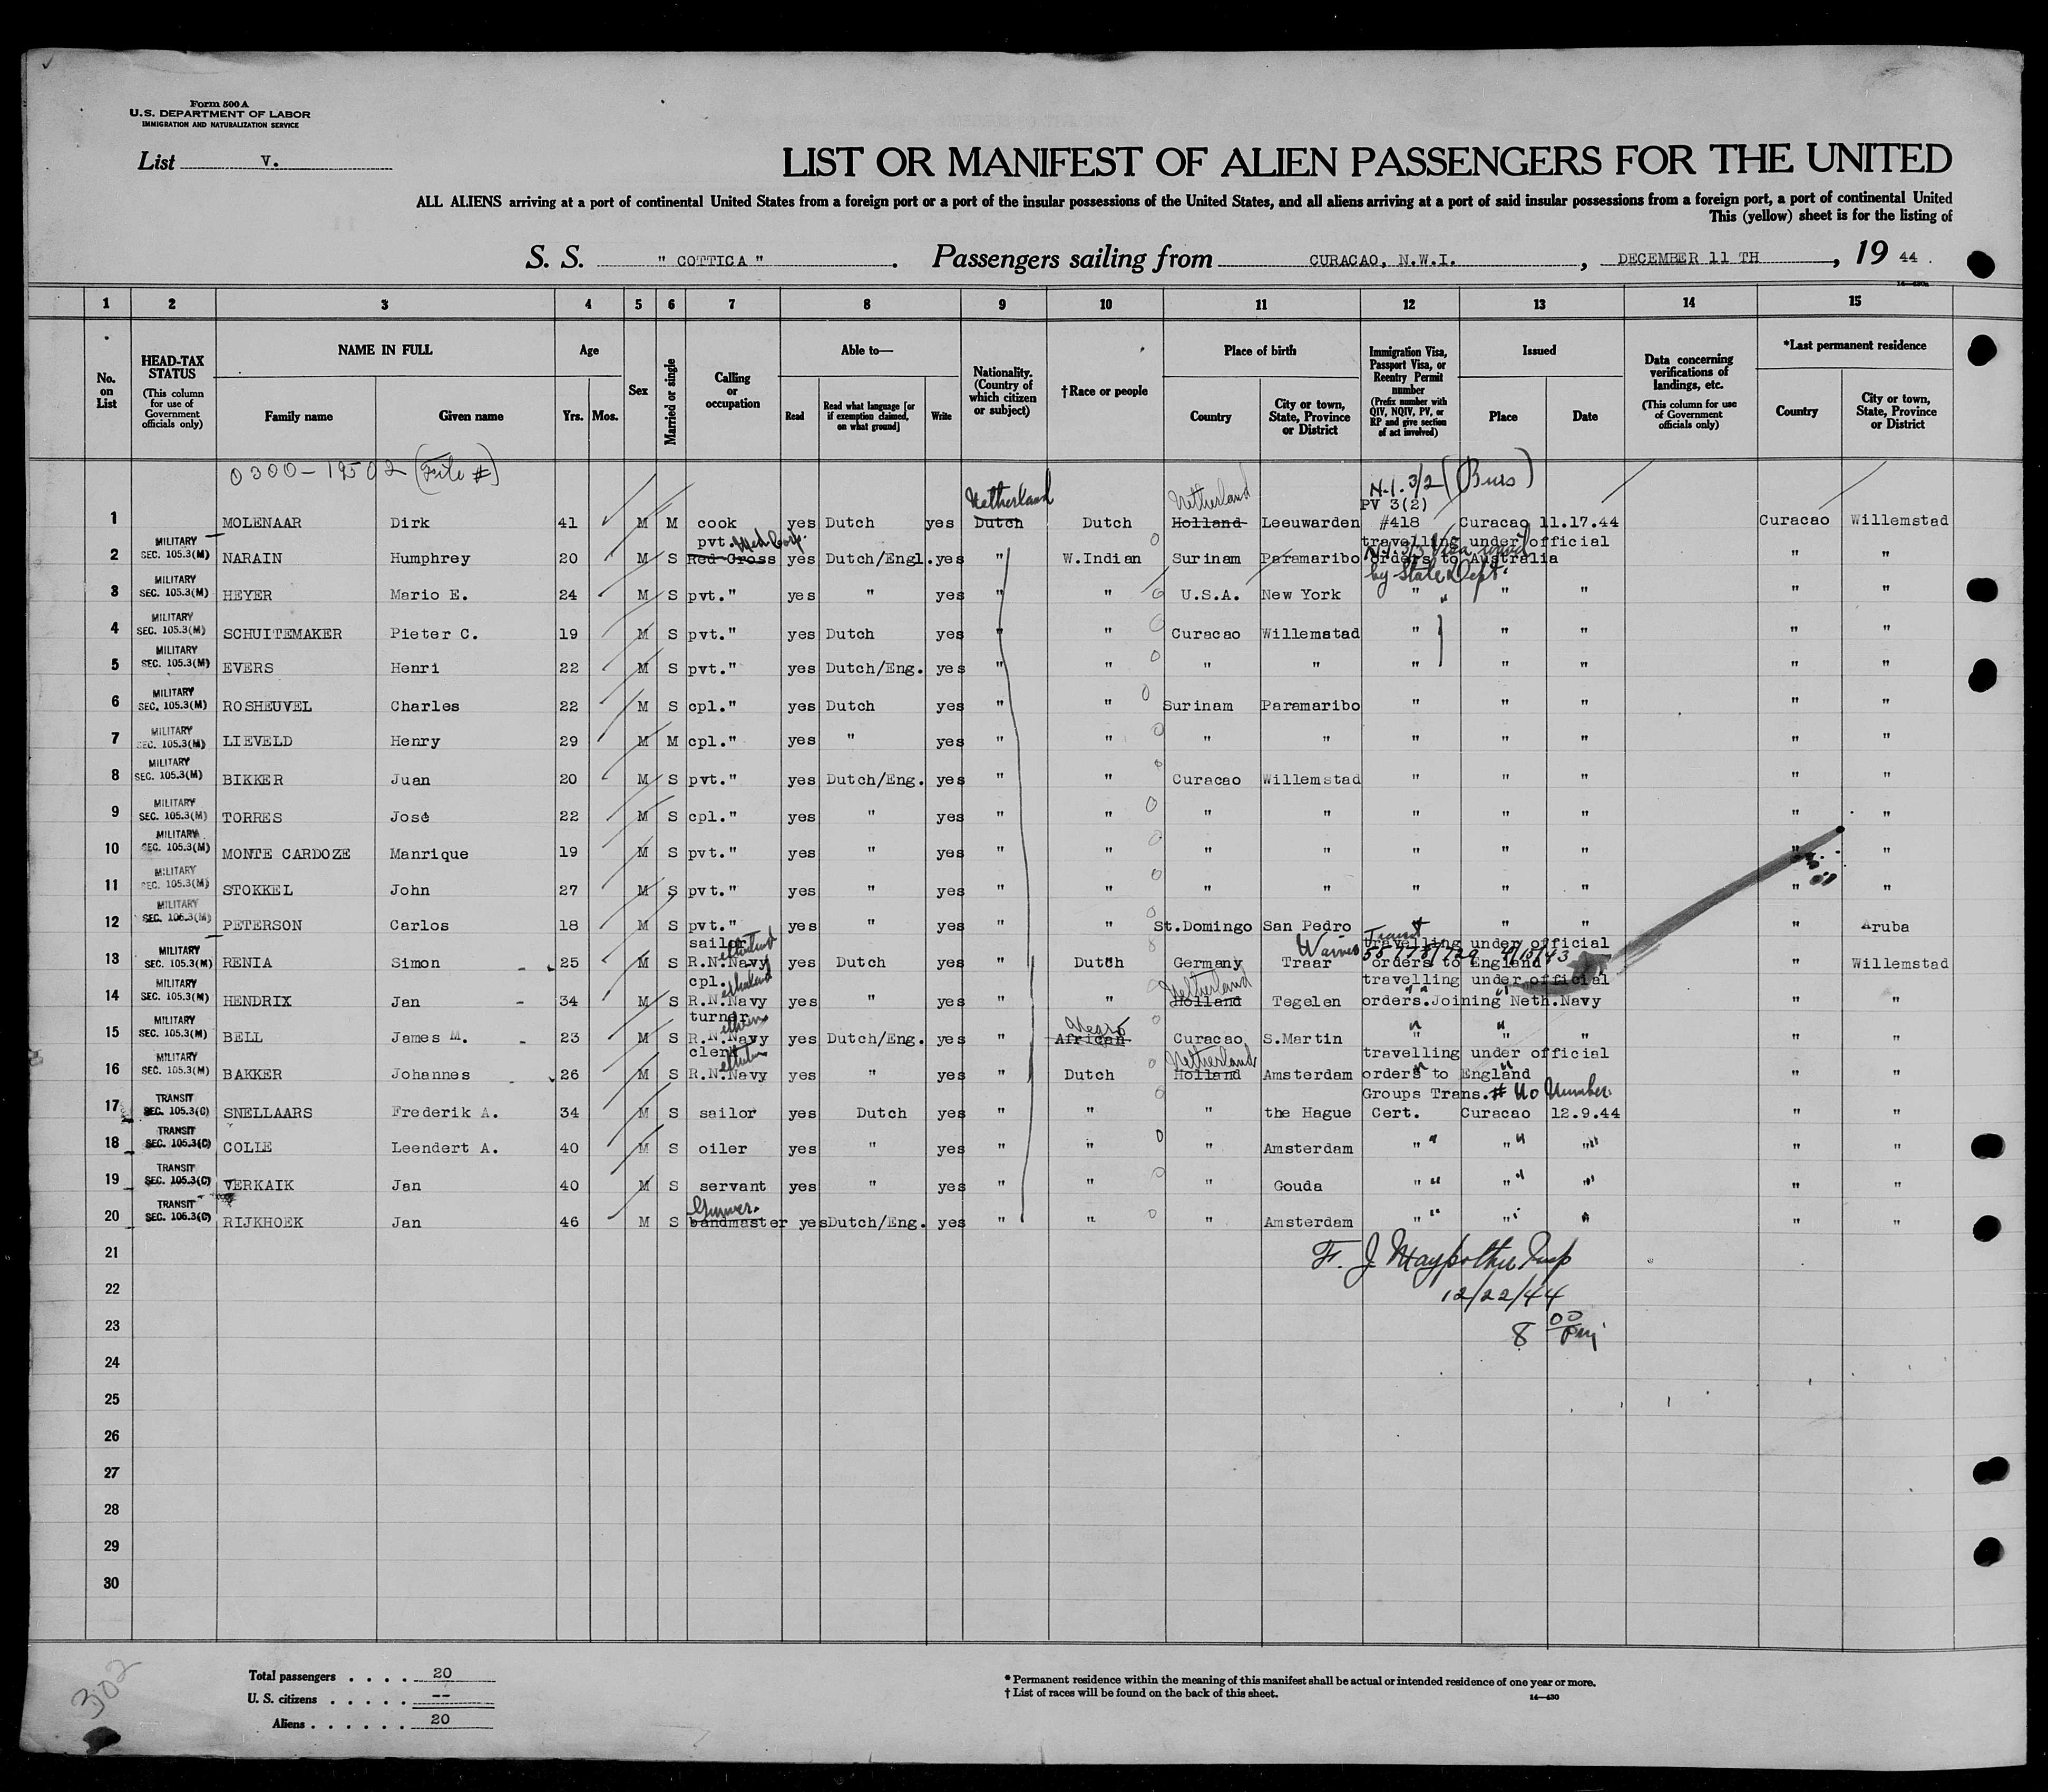 Form 500 A
U.S. DEPARTMENT OF LABOR
IMMIGRATION AND NATURALIZATION SERVICE
List V.
LIST OR MANIFEST OF ALIEN PASSENGERS FOR THE UNITED
ALL ALIENS arriving at a port of continental United States from a foreign port or a port of the insular possessions of the United States, and all aliens arriving at a port of said insular possessions from a foreign port, a port of continental United
This (yellow) sheet is for the listing of
S. S. " COTTICA " . Passengers sailing from CURACAO, N.W.I. , DECEMBER 11 TH , 19 44 .
1 2 3 4 5 6 7 8 9 10 11 12 13 14 15
No. on List
HEAD-TAX STATUS (This column for use of Government officials only)
NAME IN FULL
Family name Given name
Age
Yrs. Mos.
Sex
Married or single
Calling or occupation
Able to—
Read Read what language [or if exemption claimed, on what ground] Write
Nationality. (Country of which citizen or subject)
†Race or people
Place of birth
Country City or town, State, Province or District
Immigration Visa, Passport Visa, or Reentry Permit number (Prefix number with QIV, NQIV, PV, or RP and give section of act involved)
Issued
Place Date
Data concerning verifications of landings, etc. (This column for use of Government officials only)
*Last permanent residence
Country City or town, State, Province or District
0300-19502 (File #)
Netherland Netherland N.I. 3/2 (Burs)
PV 3(2)
1 MOLENAAR Dirk 41 M M cook yes Dutch yes Dutch Dutch Holland Leeuwarden #418 Curacao 11.17.44 Curacao Willemstad
MILITARY pvt. Med Corp. travelling under official
2 SEC. 105.3(M) NARAIN Humphrey 20 M S Red Cross yes Dutch/Engl. yes " W.Indian Surinam Paramaribo orders to Australia " "
N.I. 3/3 Visa
by State Dept.
3 MILITARY SEC. 105.3(M) HEYER Mario E. 24 M S pvt." yes " yes " " U.S.A. New York " " " " "
4 MILITARY SEC. 105.3(M) SCHUITEMAKER Pieter C. 19 M S pvt." yes Dutch yes " " Curacao Willemstad " " " " "
5 MILITARY SEC. 105.3(M) EVERS Henri 22 M S pvt." yes Dutch/Eng. yes " " " " " " " " "
6 MILITARY SEC. 105.3(M) ROSHEUVEL Charles 22 M S cpl." yes Dutch yes " " Surinam Paramaribo " " " " "
7 MILITARY SEC. 105.3(M) LIEVELD Henry 29 M M cpl." yes " yes " " " " " " " " "
8 MILITARY SEC. 105.3(M) BIKKER Juan 20 M S pvt." yes Dutch/Eng. yes " " Curacao Willemstad " " " " "
9 MILITARY SEC. 105.3(M) TORRES José 22 M S cpl." yes " yes " " " " " " " " "
10 MILITARY SEC. 105.3(M) MONTE CARDOZE Manrique 19 M S pvt." yes " yes " " " " " " " " "
11 MILITARY SEC. 105.3(M) STOKKEL John 27 M S pvt." yes " yes " " " " " " " " "
12 MILITARY SEC. 105.3(M) PETERSON Carlos 18 M S pvt." yes " yes " " St.Domingo San Pedro " " " " Aruba
sailor Transit travelling under official
13 MILITARY SEC. 105.3(M) RENIA Simon 25 M S R.N.Navy yes Dutch yes " Dutch Germany Traar orders to England " Willemstad
cpl. Netherland travelling under official
14 MILITARY SEC. 105.3(M) HENDRIX Jan 34 M S R.N.Navy yes " yes " " Holland Tegelen orders.Joining Neth.Navy " "
turner Negro
15 MILITARY SEC. 105.3(M) BELL James M. 23 M S R.N.Navy yes Dutch/Eng. yes " African Curacao S.Martin " " " " "
clerk Netherland travelling under official
16 MILITARY SEC. 105.3(M) BAKKER Johannes 26 M S R.N.Navy yes " yes " Dutch Holland Amsterdam orders to England " "
Groups Trans. # No Number
17 TRANSIT SEC. 105.3(C) SNELLAARS Frederik A. 34 M S sailor yes Dutch yes " " " the Hague Cert. Curacao 12.9.44 " "
18 TRANSIT SEC. 105.3(C) COLLE Leendert A. 40 M S oiler yes " yes " " " Amsterdam " " " " "
19 TRANSIT SEC. 105.3(C) VERKAIK Jan 40 M S servant yes " yes " " " Gouda " " " " "
Gunner.
20 TRANSIT SEC. 105.3(C) RIJKHOEK Jan 46 M S bandmaster yes Dutch/Eng. yes " " " Amsterdam " " " " "
21
22 12/22/44
23 8 00
24
25
26
27
28
29
30
302
Total passengers . . . . 20
U. S. citizens . . . . . --
Aliens . . . . . . 20
* Permanent residence within the meaning of this manifest shall be actual or intended residence of one year or more.
† List of races will be found on the back of this sheet.
14—430